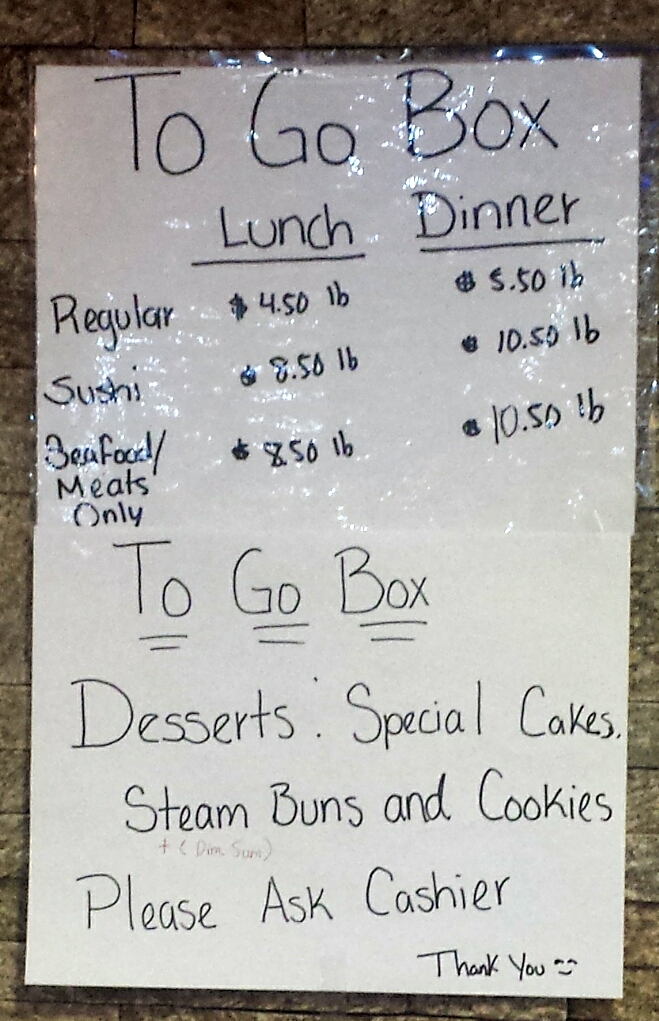 To Go Box
Lunch Dinner
Regular $ 4.50 lb $ 5.50 lb
Sushi $ 8.50 lb $ 10.50 lb
Seafood/ $ 8.50 lb $ 10.50 lb
Meats
Only
To Go Box
Desserts: Special Cakes,
Steam Buns and Cookies
+ (Dim Sum)
Please Ask Cashier
Thank You